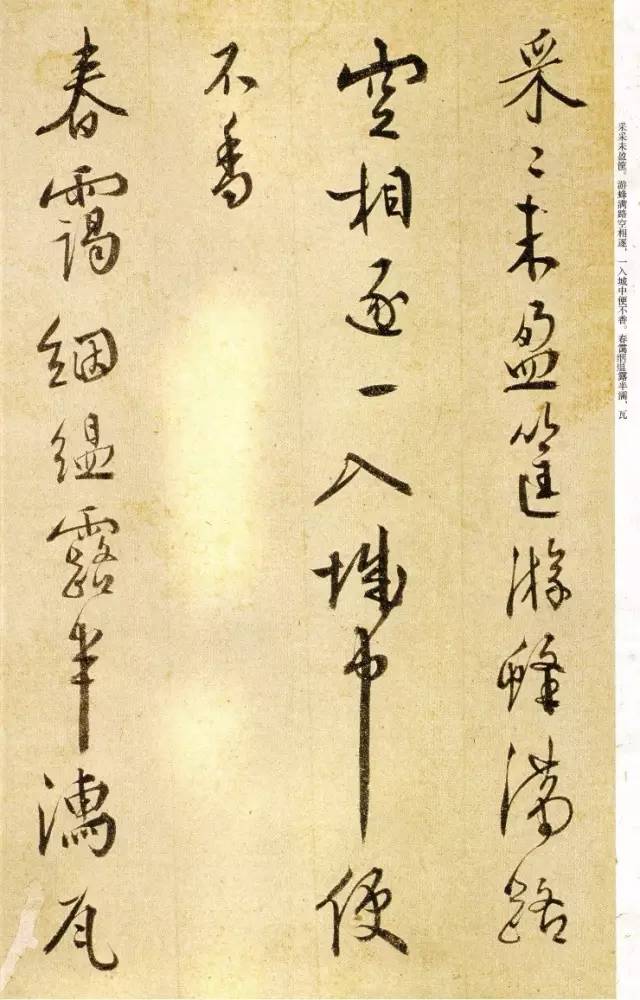 采采未盈筐。游蜂满路空相逐,一入城中便不香。春霭絪缊露半漙,瓦
采〻未盈筐游蜂滿路
空相逐一入城中便
不香
春靄絪緼露半漙瓦